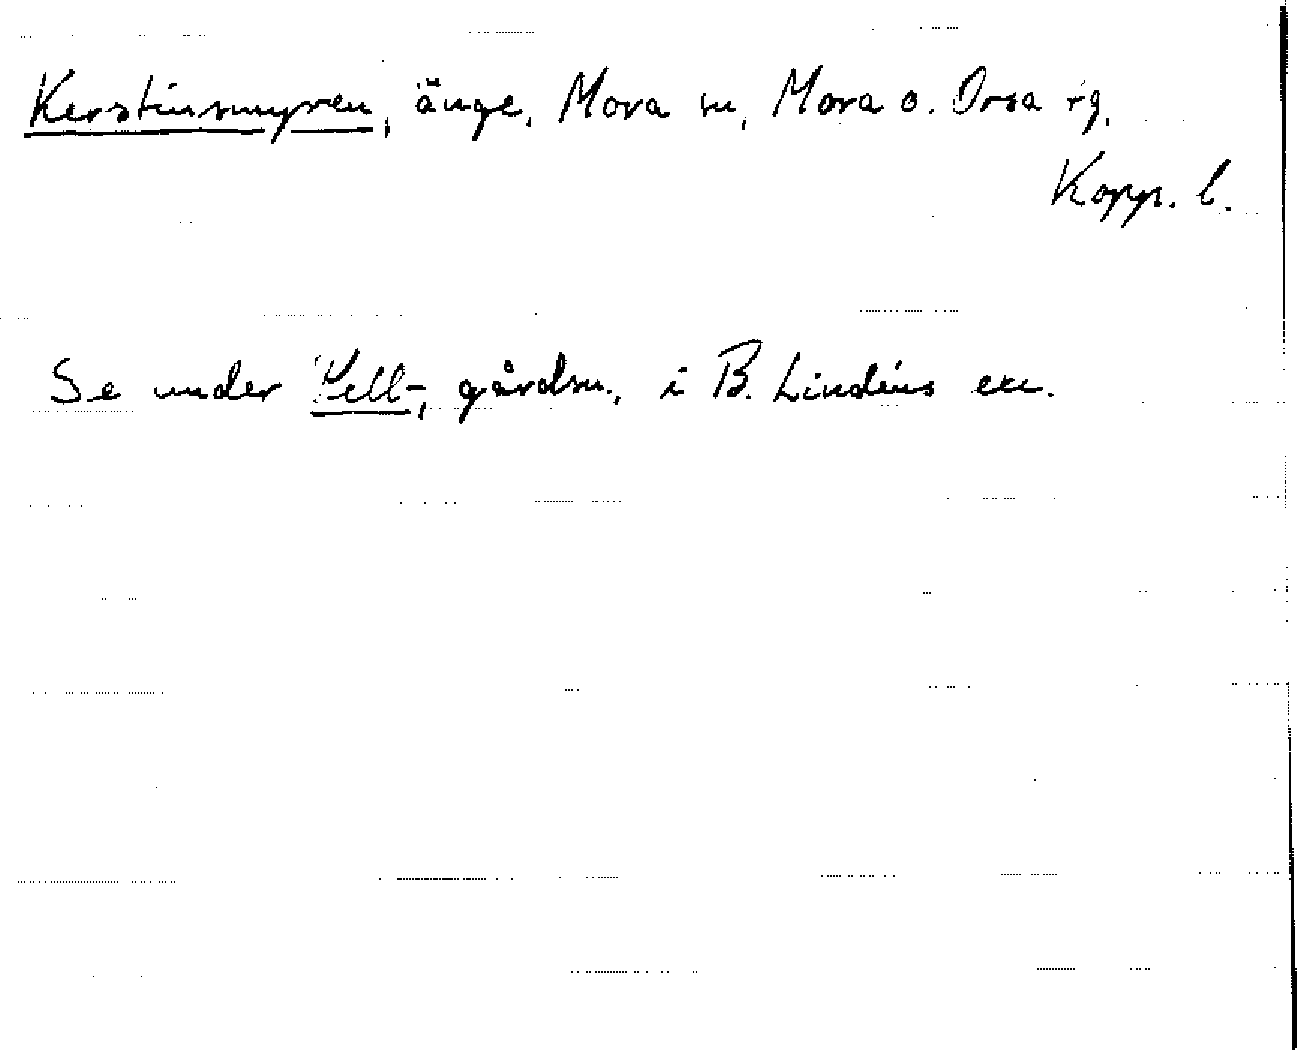 Kerstinsmyren, änge, Mora sn, Mora o. Orsa tg,
Kopp. l.
Se under Pell-, gårdsn., i B. Lindéns exc.